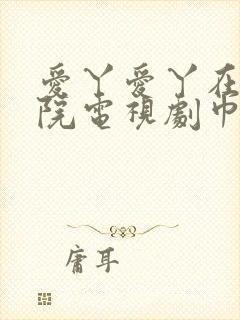 愛丫愛丫在
院電視劇巾
庸耳